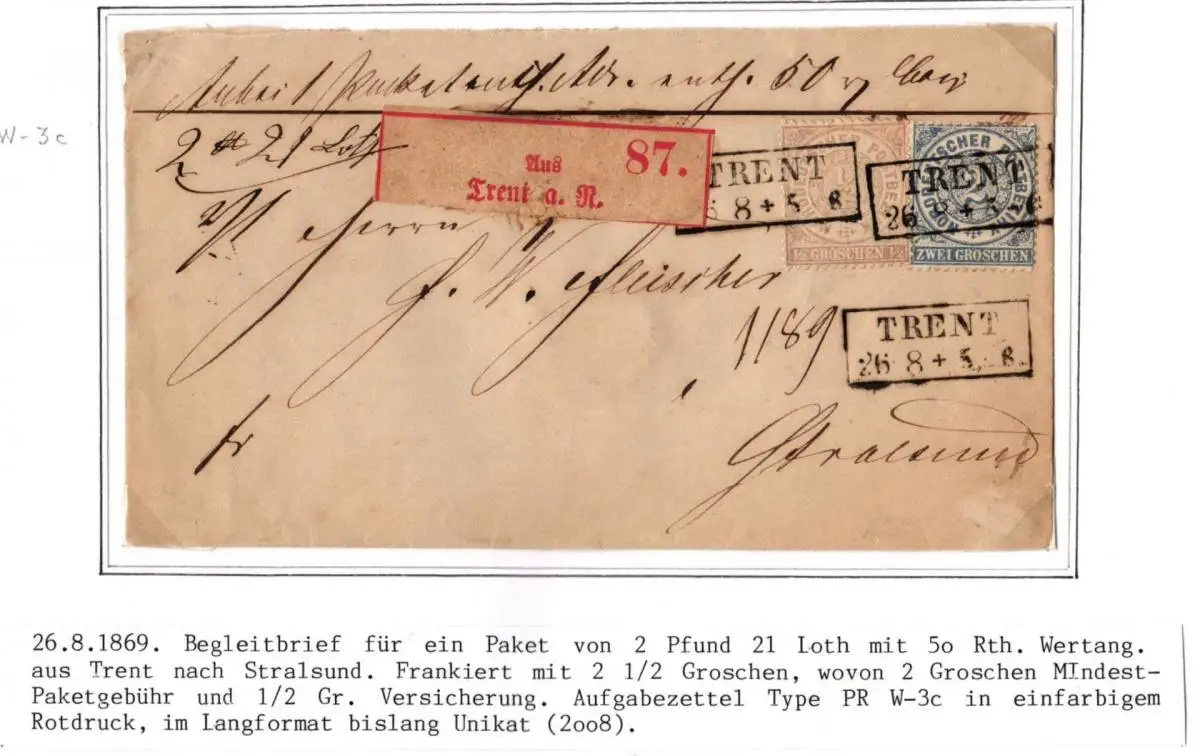 W-3c
Anbei 1 Packet enth. 50 r
2 ℔ 21 Loth
Aus 87.
Trent a. R.
TRENT
26 8 + 5 - 8
NORDDEUTSCHER POSTBEZIRK
1/2 GROSCHEN 1/2
TRENT
26 8 + 5 - 8
NORDDEUTSCHER POSTBEZIRK
ZWEI GROSCHEN
Herrn
F. W. Fleischer
1189
TRENT
26 8 + 5 - 8
fr
Stralsund
26.8.1869. Begleitbrief für ein Paket von 2 Pfund 21 Loth mit 5o Rth. Wertang.
aus Trent nach Stralsund. Frankiert mit 2 1/2 Groschen, wovon 2 Groschen MIndest-
Paketgebühr und 1/2 Gr. Versicherung. Aufgabezettel Type PR W-3c in einfarbigem
Rotdruck, im Langformat bislang Unikat (2oo8).